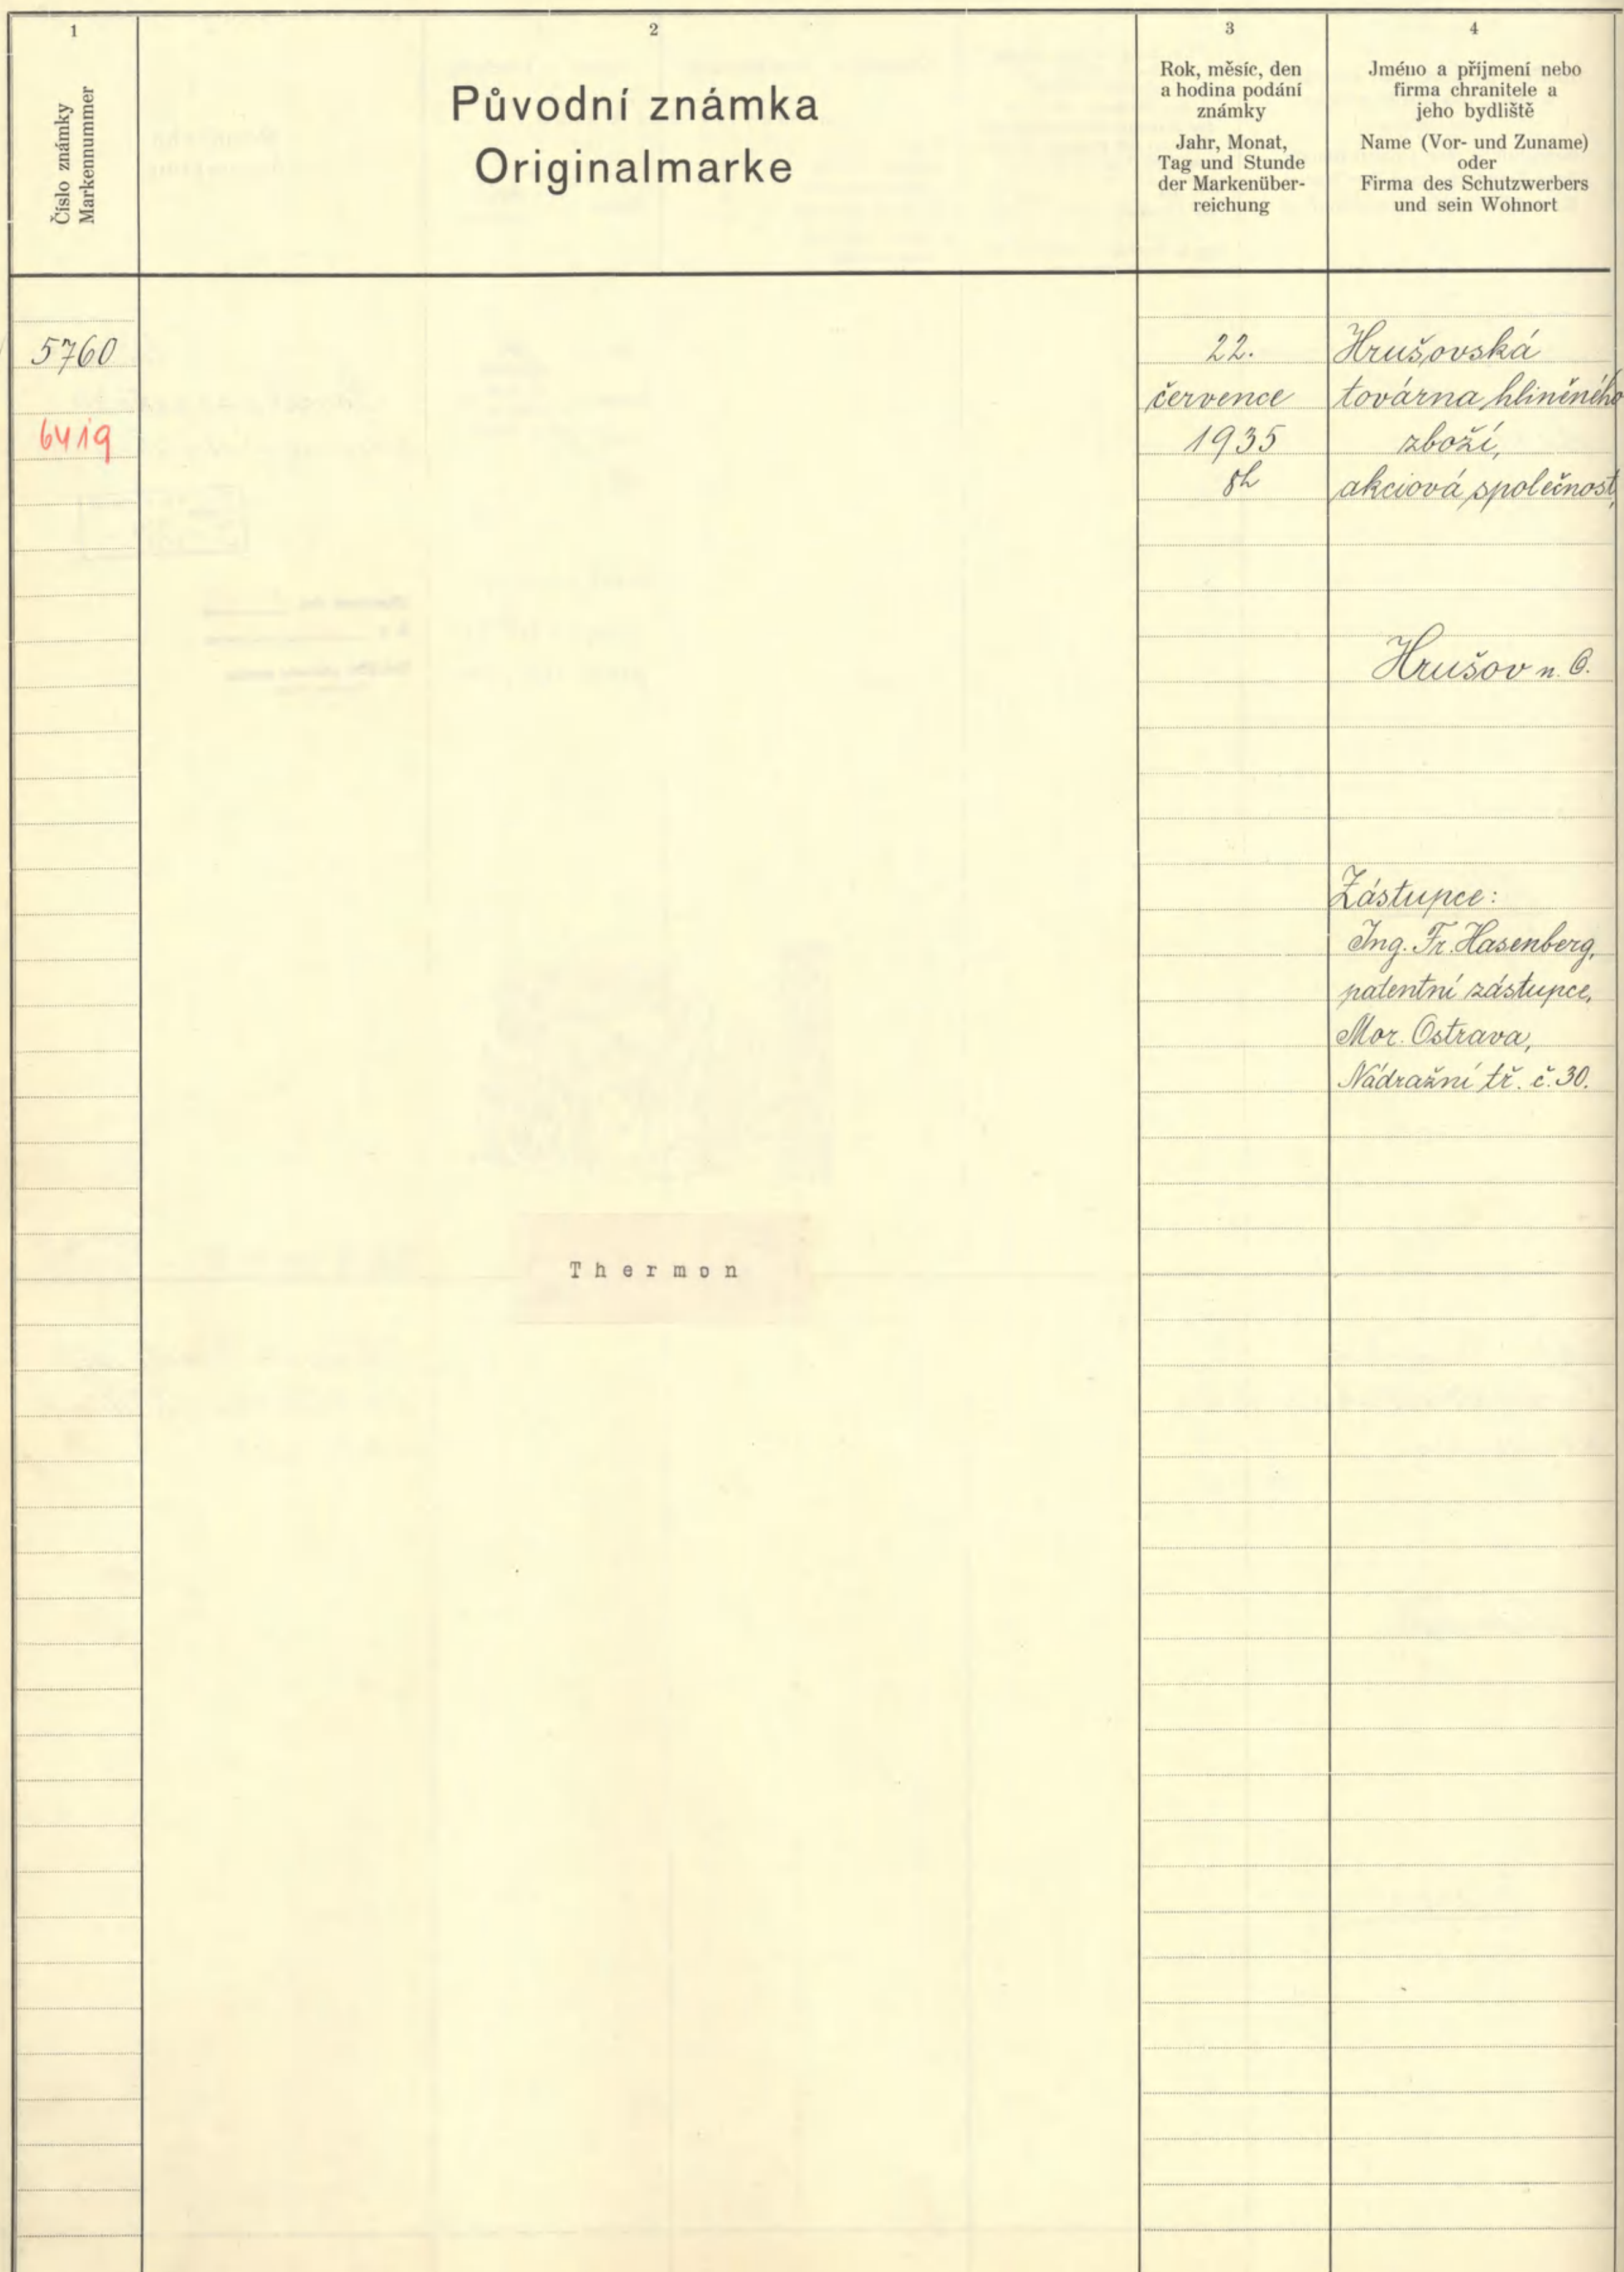 1
Číslo známky
Markennummer
2
Původní známka
Originalmarke
3
Rok, měsíc, den
a hodina podání
známky
Jahr, Monat,
Tag und Stunde
der Markenüber-
reichung
4
Jméno a příjmení nebo
firma chranitele a
jeho bydliště
Name (Vor- und Zuname)
oder
Firma des Schutzwerbers
und sein Wohnort
5760
6419
Thermon
22.
července
1935
8h
Hrušovská
továrna hliněného
zboží,
akciová společnost,
Hrušov n. O.
Zástupce:
Ing. Fr. Hasenberg,
patentní zástupce,
Mor. Ostrava,
Nádražní tř. č. 30.